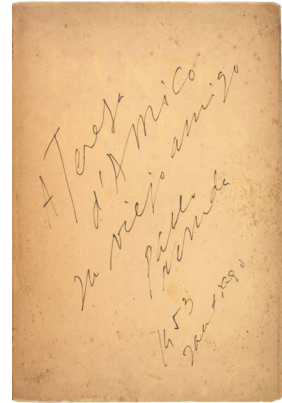 A Teresa
d'Amico
su viejo amigo
Pablo
Neruda
1953
Santiago